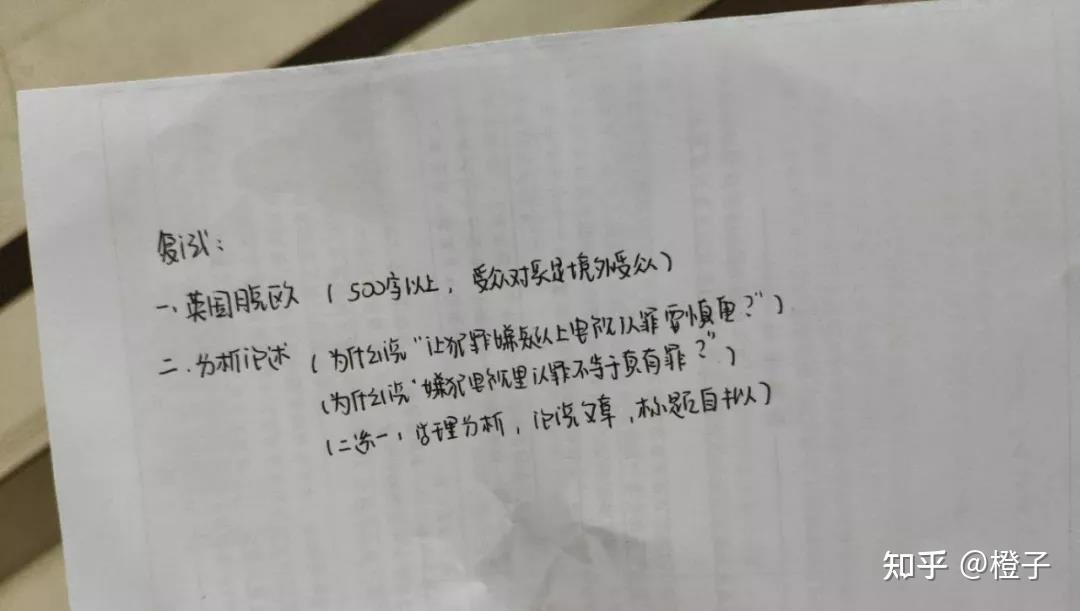 复试：
一、英国脱欧（500字以上，受众对象是境外受众）
二、分析论述（为什么说“让犯罪嫌疑人上电视认罪需慎重？”）
（为什么说“嫌犯电视里认罪不等于真有罪？”）
（二选一，学理分析，论说文章，标题自拟）
知乎 @橙子